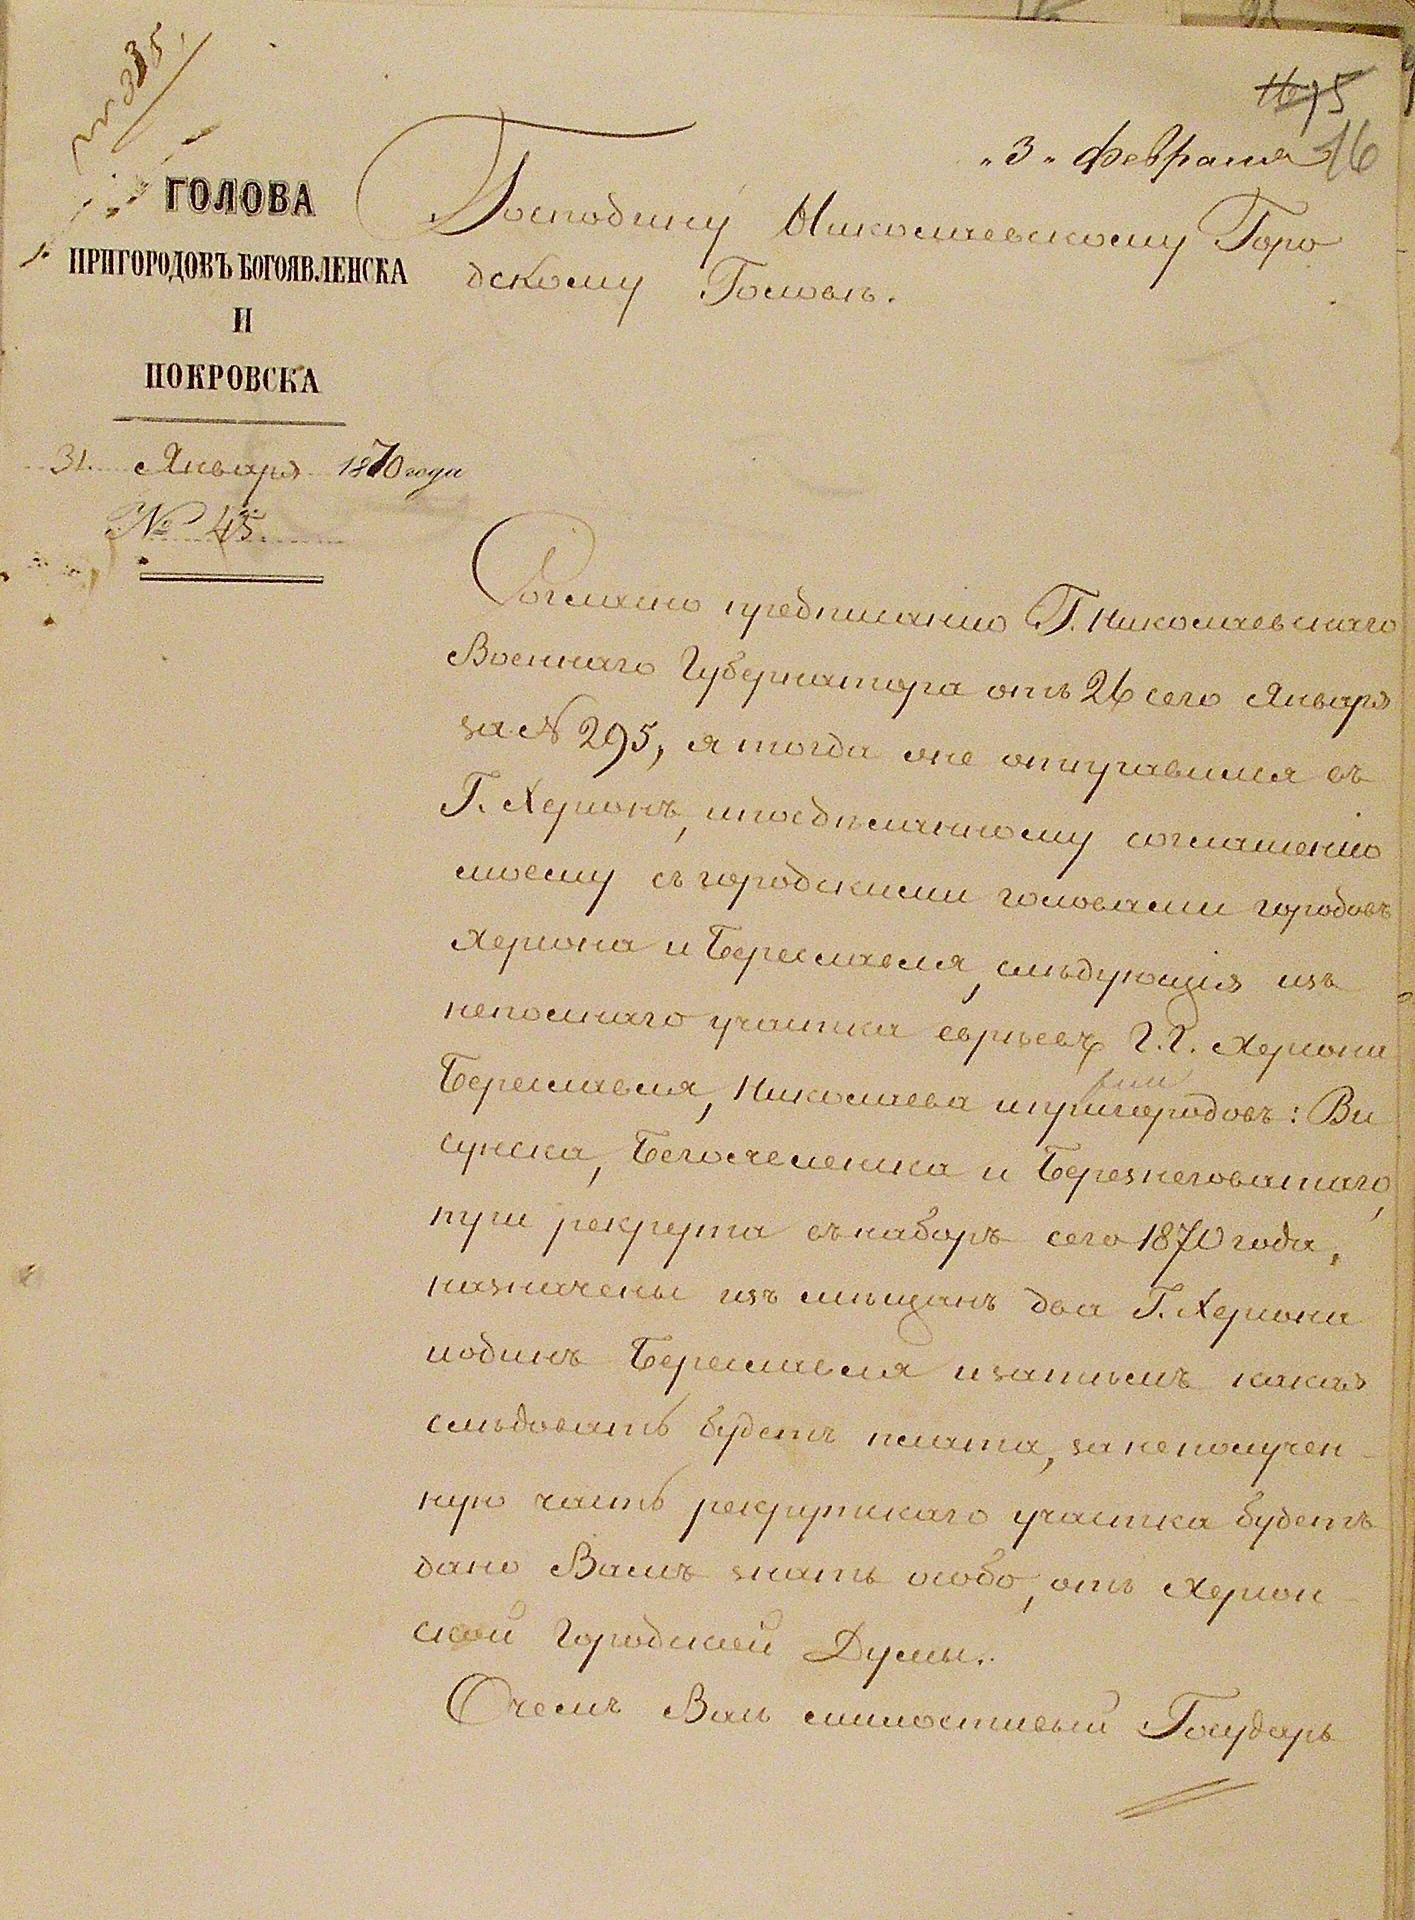 № 335.
15
16
"3" Февраля
ГОЛОВА
ПРИГОРОДОВЪ БОГОЯВЛЕНСКА
И
ПОКРОВСКА
31. Января 1870 года
№ 45
Господину Николаевскому Горо
дскому Головѣ.
Согласно предписанію Г. Николаевскаго
Военнаго Губернатора отъ 26 сего Января
за № 295, я тогда же отправился въ
Г. Херсонъ, и по сдѣланному соглашенію
моему съ городскими головами городовъ
Херсона и Береславля, слѣдующія изъ
неполнаго участка евреевъ Г.Г. Херсона
Береславля, Николаева и пригородовъ: Ви
сунска, Богоявленска и Березнеговатаго,
три рекрута въ наборъ сего 1870 года,
назначены изъ мѣщанъ два Г. Херсона
и одинъ Береславля и затѣмъ какая
слѣдовать будетъ плата, за неполучен-
ную часть рекрутскаго участка будетъ
дано Вамъ знать особо, отъ Херсон-
ской Городской Думы.
О чемъ Васъ милостивый Государь